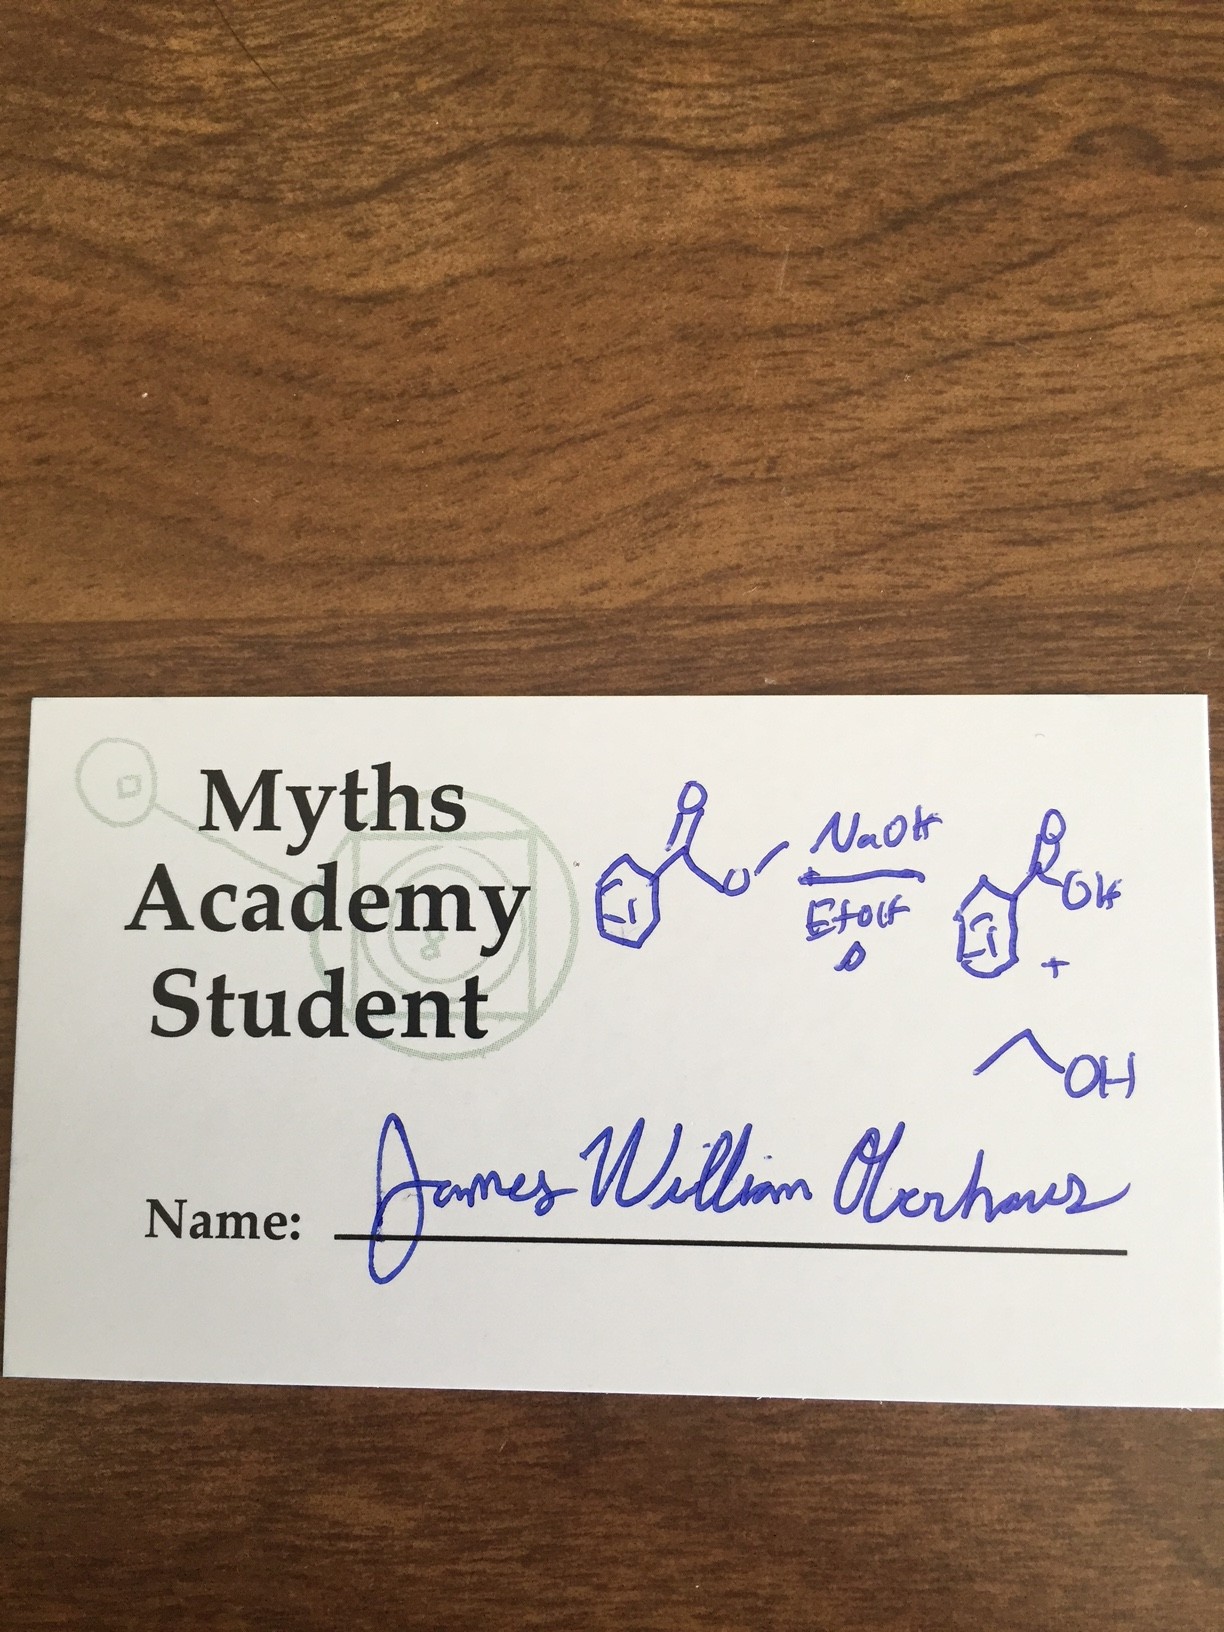 Myths
Academy
Student
O
O
NaOH
EtOH
Δ
O
OH
+
OH
Name: James William Oberhaus
8